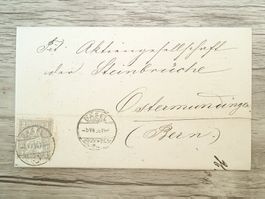 Tit. Aktiengesellschaft
der Steinbrüche
Ostermundingen
(Bern.)
BASEL